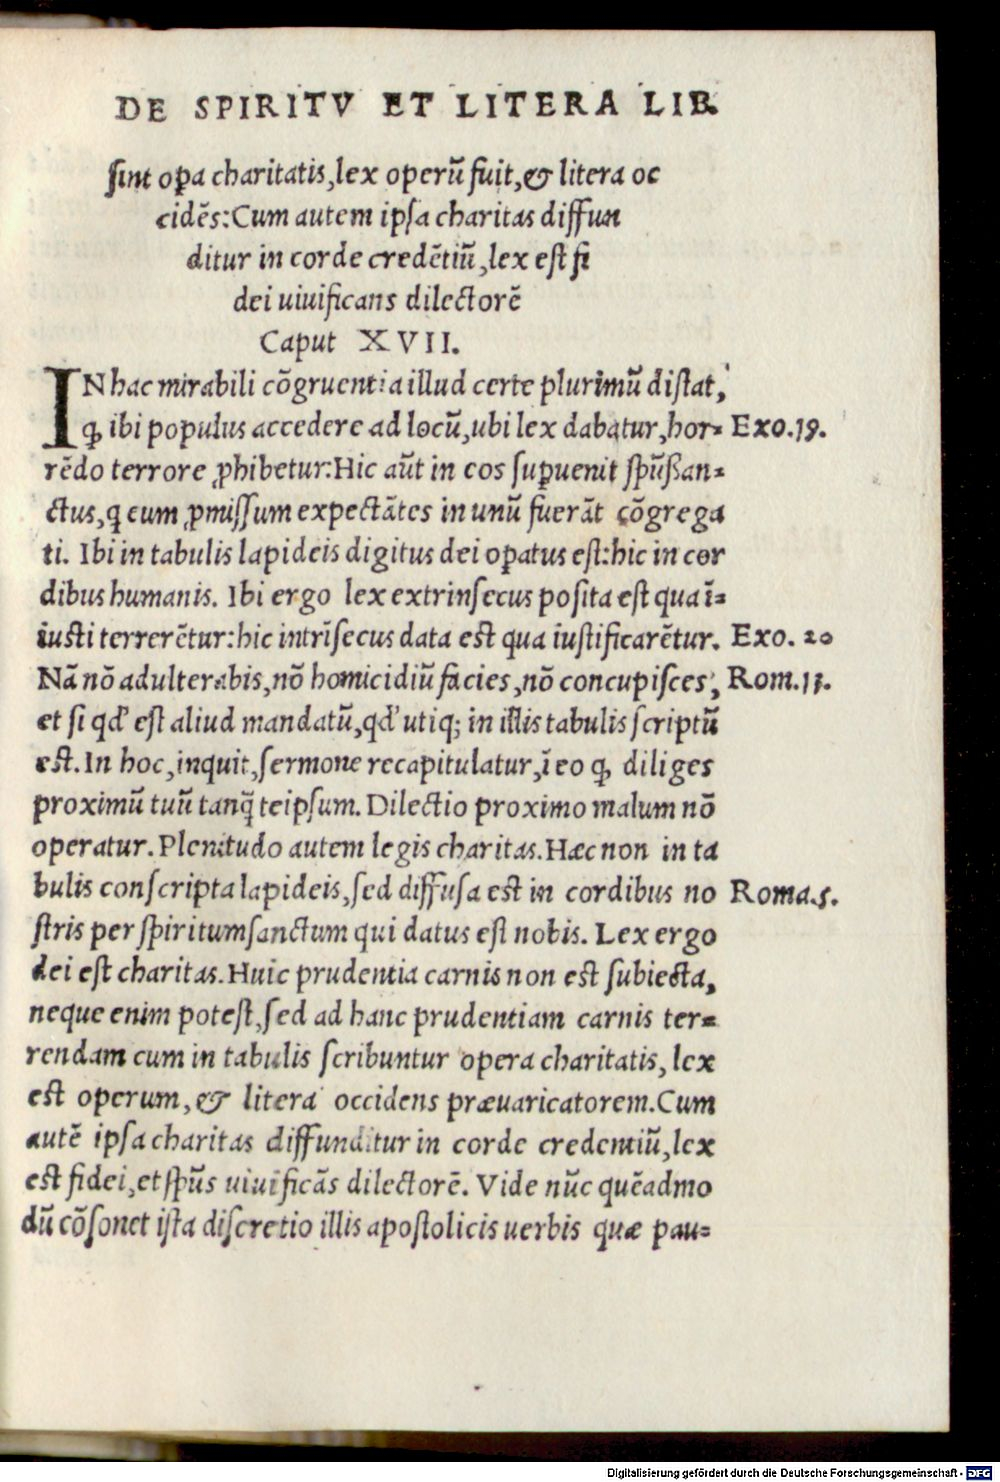 DE SPIRITV ET LITERA LIB.
sint oꝑa charitatis, lex operũ fuit, & litera oc
cidẽs: Cum autem ipsa charitas diffun
ditur in corde credẽtiũ, lex est fi
dei uiuificans dilectorẽ
Caput XVII.
IN hac mirabili cõgruentia illud certe plurimũ distat,
ꝙ ibi populus accedere ad locũ, ubi lex dabatur, hor= Exo. 19.
rẽdo terrore ꝓhibetur: Hic aũt in eos suꝑuenit spũssan=
ctus, q eum ꝓmissum expectãtes in unũ fuerãt cõgrega
ti. Ibi in tabulis lapideis digitus dei oꝑatus est: hic in cor
dibus humanis. Ibi ergo lex extrinsecus posita est qua ĩ=
iusti terrerẽtur: hic intrĩsecus data est qua iustificarẽtur. Exo. 20
Nã nõ adulterabis, nõ homicidiũ facies, nõ concupisces, Rom. 13.
et si qd' est aliud mandatũ, qd' utiq; in illis tabulis scriptũ
est. In hoc, inquit, sermone recapitulatur, ĩ eo ꝙ diliges
proximũ tuũ tanq̃ teipsum. Dilectio proximo malum nõ
operatur. Plenitudo autem legis charitas. Hæc non in ta
bulis conscripta lapideis, sed diffusa est in cordibus no Roma. 5.
stris per spiritumsanctum qui datus est nobis. Lex ergo
dei est charitas. Huic prudentia carnis non est subiecta,
neque enim potest, sed ad hanc prudentiam carnis ter=
rendam cum in tabulis scribuntur opera charitatis, lex
est operum, & litera occidens præuaricatorem. Cum
autẽ ipsa charitas diffunditur in corde credentiũ, lex
est fidei, et spũs uiuificãs dilectorẽ. Vide nũc quẽadmo
dũ cõsonet ista discretio illis apostolicis uerbis quæ pau=
Digitalisierung gefördert durch die Deutsche Forschungsgemeinschaft - DFG